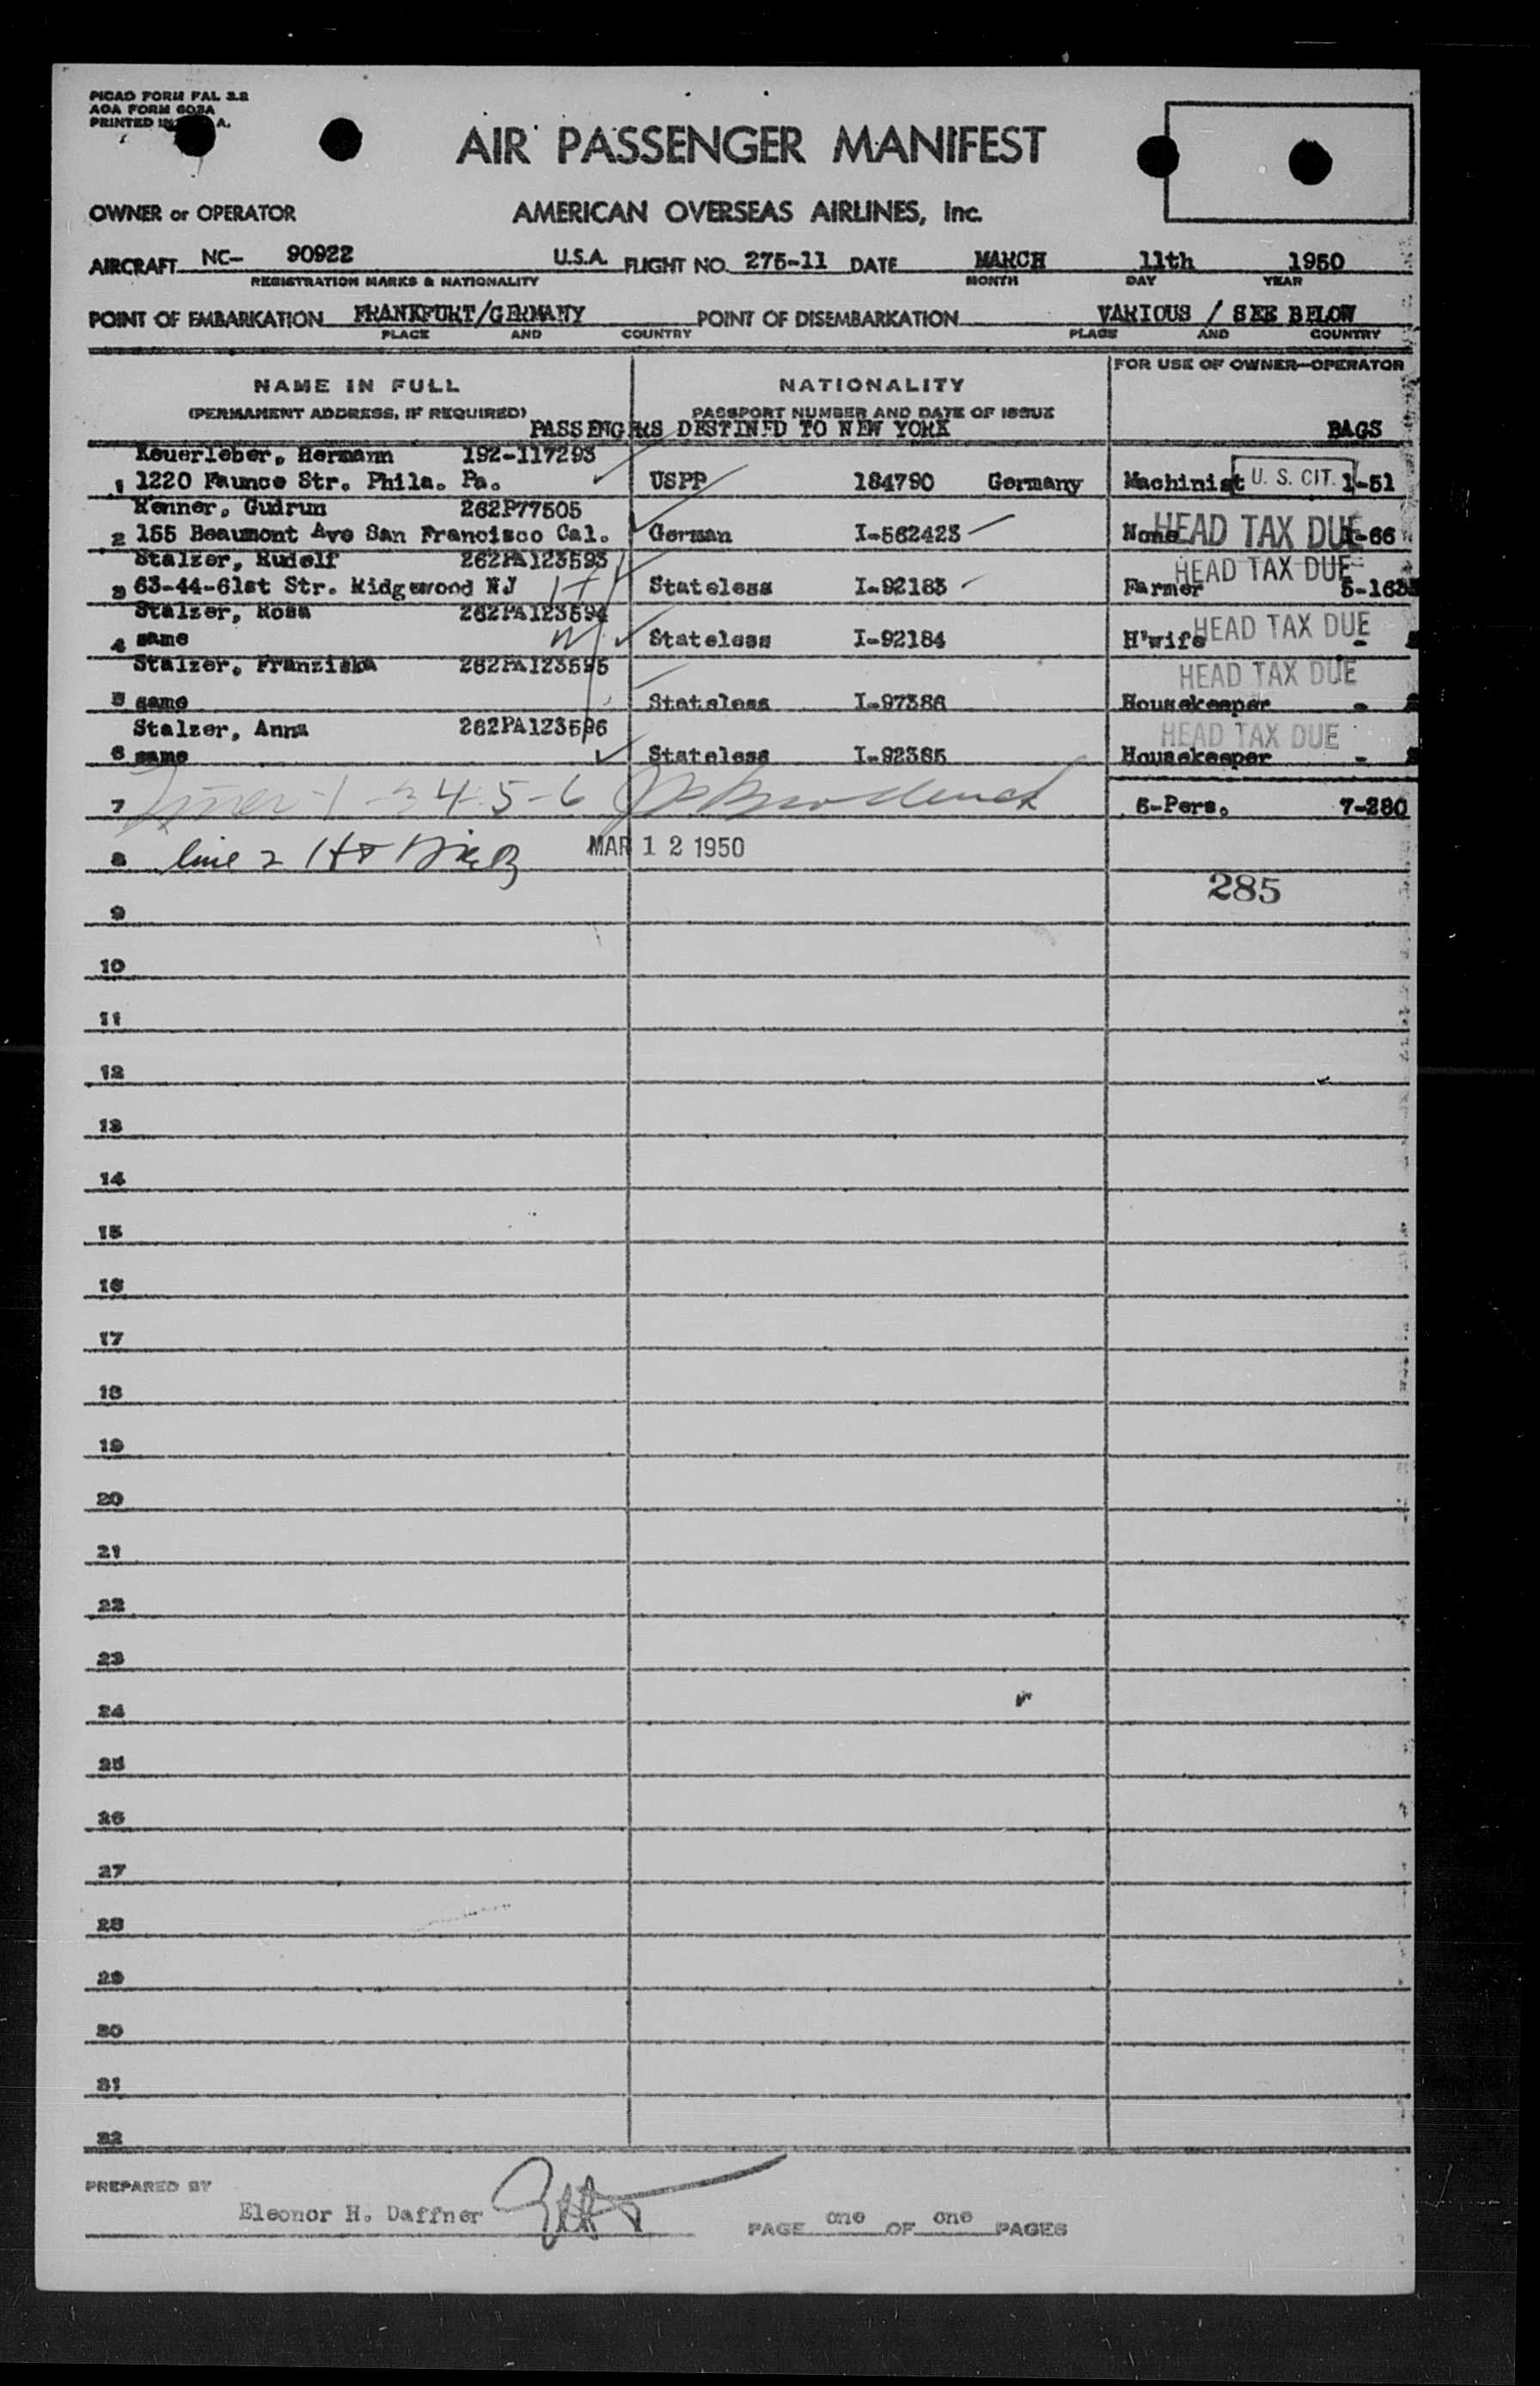 PICAO FORM PAL 2.2
AOA FORM 603A
PRINTED IN A.
AIR PASSENGER MANIFEST
OWNER or OPERATOR AMERICAN OVERSEAS AIRLINES, Inc.
AIRCRAFT NC- 90922 U.S.A. FLIGHT NO. 275-11 DATE MARCH 11th 1950
REGISTRATION MARKS & NATIONALITY MONTH DAY YEAR
POINT OF EMBARKATION FRANKFURT/GERMANY POINT OF DISEMBARKATION VARIOUS / SEE BELOW
PLACE AND COUNTRY PLACE AND COUNTRY
NAME IN FULL NATIONALITY FOR USE OF OWNER—OPERATOR
(PERMANENT ADDRESS, IF REQUIRED) PASSPORT NUMBER AND DATE OF ISSUE
PASSENGERS DESTINED TO NEW YORK BAGS
Keuerleber, Hermann 192-117293
1 1220 Faunce Str. Phila. Pa. USPP 184790 Germany Machinist U. S. CIT. 1-51
Renner, Gudrun 262P77505
2 155 Beaumont Ave San Francisco Cal. German I-562423 None HEAD TAX DUE 1-66
Stalzer, Rudolf 262PA123593
3 63-44-61st Str. Ridgewood NJ Stateless I-92183 Farmer HEAD TAX DUE 5-163
Stalzer, Rosa 262PA123594
4 same Stateless I-92184 H'wife HEAD TAX DUE -
Stalzer, Franziska 262PA123595
5 same Stateless I-97386 Housekeeper HEAD TAX DUE -
Stalzer, Anna 262PA123596
6 same Stateless I-92385 Housekeeper HEAD TAX DUE -
7 1-3 4-5-6 6-Pers. 7-280
8 line 2 MAR 12 1950
285
9
10
11
12
13
14
15
16
17
18
19
20
21
22
23
24
25
26
27
28
29
30
31
32
PREPARED BY
Eleonor H. Daffner PAGE one OF one PAGES